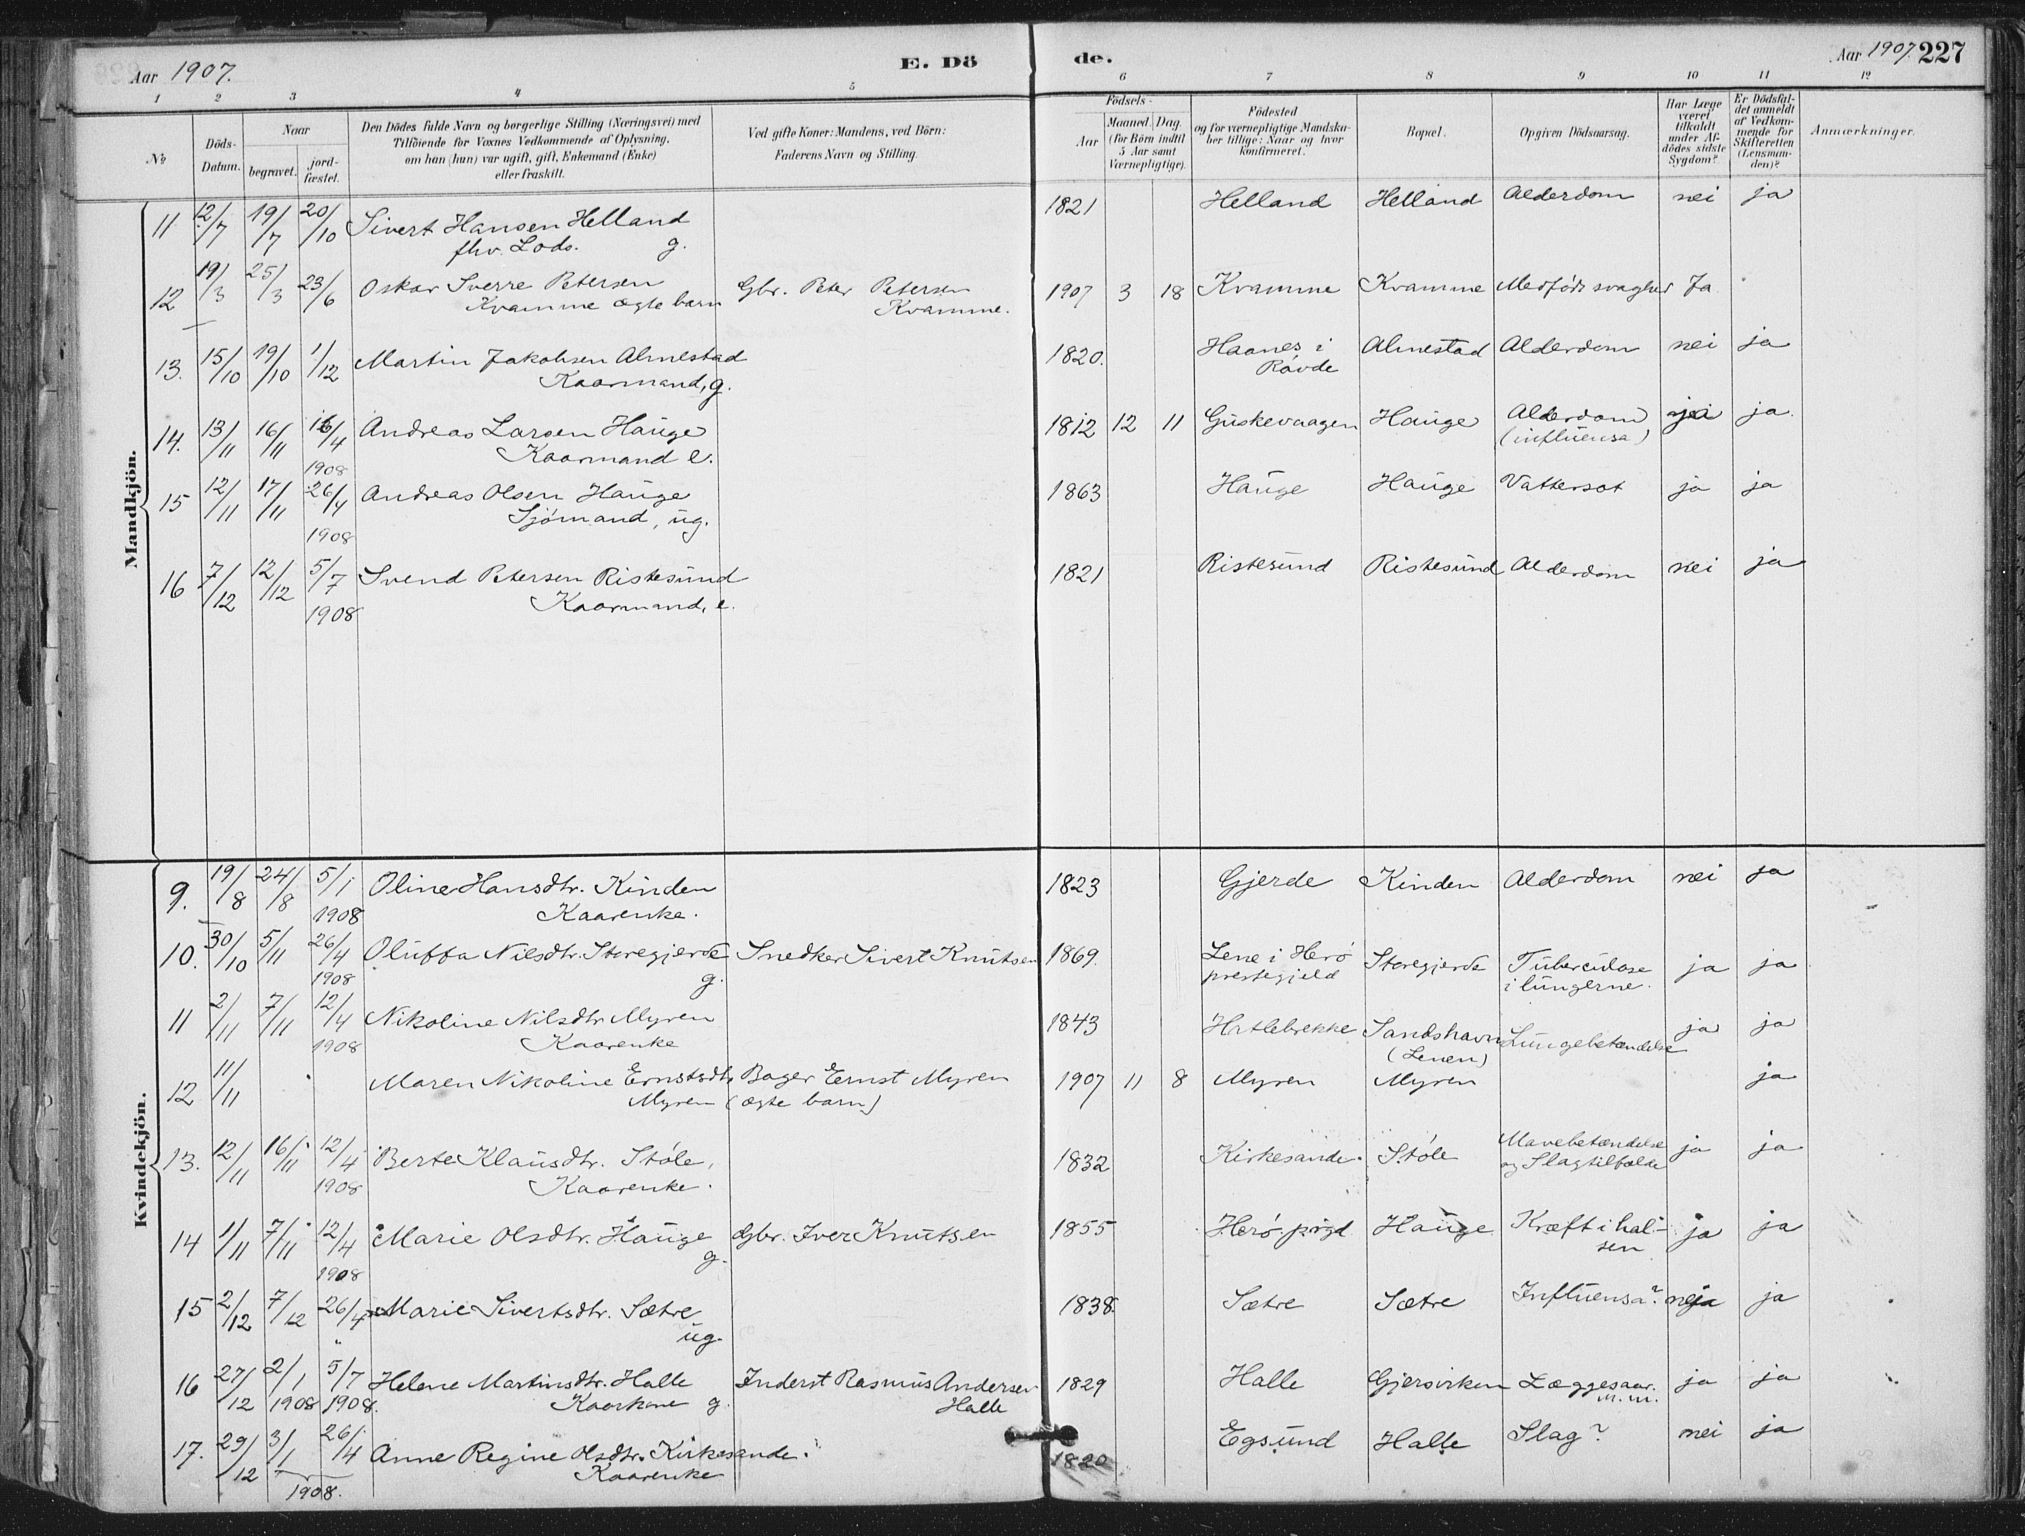 Aar 1907. E. Dö de. Aar 1907. 227
1 2 3 4 5 6 7 8 9 10 11 12
№ Döds-Datum. Naar begravet. jord-fæstet. Den Dödes fulde Navn og borgerlige Stilling (Næringsvei) med Tilföiende for Voxnes Vedkommende af Oplysning, om han (hun) var ugift, gift, Enkemand (Enke) eller fraskilt. Ved gifte Koner: Mandens, ved Börn: Faderens Navn og Stilling. Födsels- Aar Maaned. Dag. (for Börn indtil 5 Aar samt Værnepligtige). Födested og for værnepligtige Mandska-ber tillige: Naar og hvor konfirmeret. Bopæl. Opgiven Dödsaarsag. Har Læge været tilkaldt under Af-dödes sidste Sygdom? Er Dödsfal-det anmeldt af Vedkom-mende for Skifteretten (Lensman-den)? Anmærkninger.
Mandkjön.
11 12/7 19/7 20/10 Sivert Hansen Helland 1821 Helland Helland Alderdom nei ja
fhv. Lods. g.
12 19/3 25/3 23/6 Oskar Sverre Petersen Gbr. Peter Petersen 1907 3 18 Kvamme Kvamme Medföds svaghed Ja
Kvamme ægte barn Kvamme.
13. 15/10 19/10 1/12 Martin Jakobsen Almestad 1820. Haanes i Almestad Alderdom nei ja
Kaarmand, g. Røvde
14. 13/11 16/11 /4 Andreas Larsen Hauge 1812 12 11 Guskevaagen Hauge Alderdom ja.
Kaarmand e. (influensa)
1908
15 12/11 17/11 26/4 Andreas Olsen Hauge 1863 Hauge Hauge Vattersot ja ja
Sjømand, ug.
1908
16 7/12 12/12 5/7 Svend Petersen Ristesund 1821 Ristesund Ristesund Alderdom nei ja
1908 Kaarmand, e.
Kvindekjön.
9. 19/8 24/8 5/1 Oline Hansdtr. Kinden 1823 Gjerde Kinden Alderdom nei ja
1908 Kaarenke.
10. 30/10 5/11 26/4 Oluffa Nilsdtr. Storegjerde Snedker Sivert Knutsen 1869. Lene i Herø Storegjerde Tuberculose ja ja
1908 g. prestegjeld i lungerne.
11 2/11 7/11 12/4 Nikoline Nilsdtr Myren 1843 Hatlebrekke Sandshavn Lungebetændelse ja ja
1908 Kaarenke (Lenen)
12 11/11 Maren Nikoline Ernstsdtr. Bager Ernst Myren 1907 11 8 Myren Myren ja
Myren (ægte barn)
13. 12/11 16/11 12/4 Berte Klausdtr. Støle, 1832 Kirkesande. Støle Mavebetændelse ja ja
1908 Kaarenke. og Slagtilfælde
14 1/11 7/11 12/4 Marie Olsdtr. Hauge Gbr. Iver Knutsen 1855 Herø prgd Hauge Kræft i hal- ja ja
1908 g. sen
15 2/12 7/12 26/4 Marie Sivertsdtr. Sætre 1838. Sætre Sætre Influensa? ja
" ug.
16 27/12 2/1 5/7 Helene Martinsdtr. Halle Inderst Rasmus Andersen 1829 Halle Gjersvirken Læggesaar. ja ja
1908 1908. Kaarkone g. Halle m.m.
17. 29/12 3/1 26/4 Anne Regine Olsdtr. Kirkesande. 1820 Egsund Halle Slag? nei ja
1908. Kaarenke